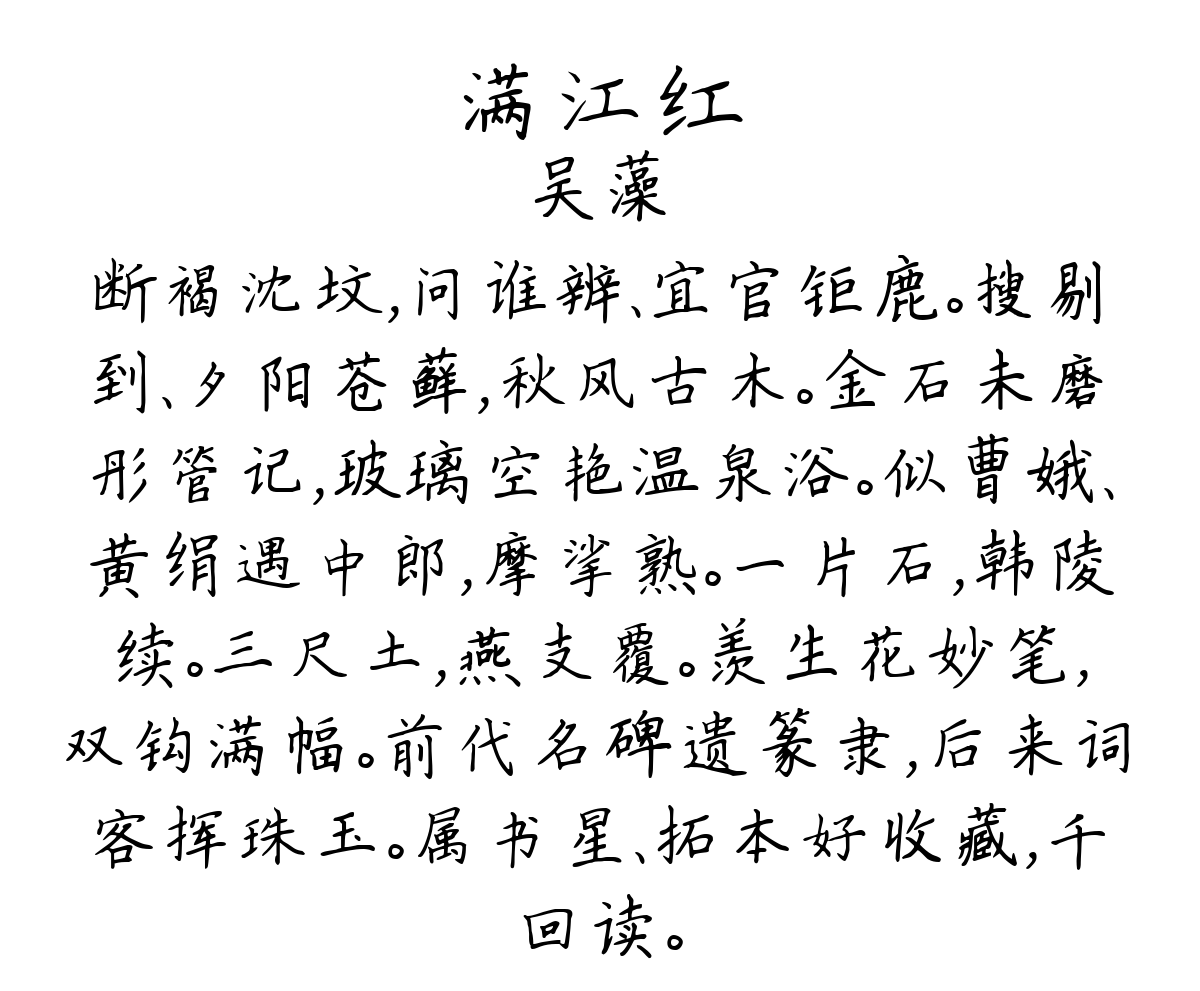 满江红
吴藻
断褐沈坟,问谁辨、宜官钜鹿。搜剔
到、夕阳苍藓,秋风古木。金石未磨
彤管记,玻璃空艳温泉浴。似曹娥、
黄绢遇中郎,摩挲熟。一片石,韩陵
续。三尺土,燕支覆。羡生花妙笔,
双钩满幅。前代名碑遗篆隶,后来词
客挥珠玉。属书星、拓本好收藏,千
回读。